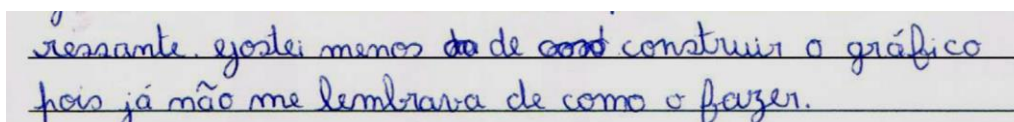 ressante. gostei menos de construir o gráfico
pois já não me lembrava de como o fazer.